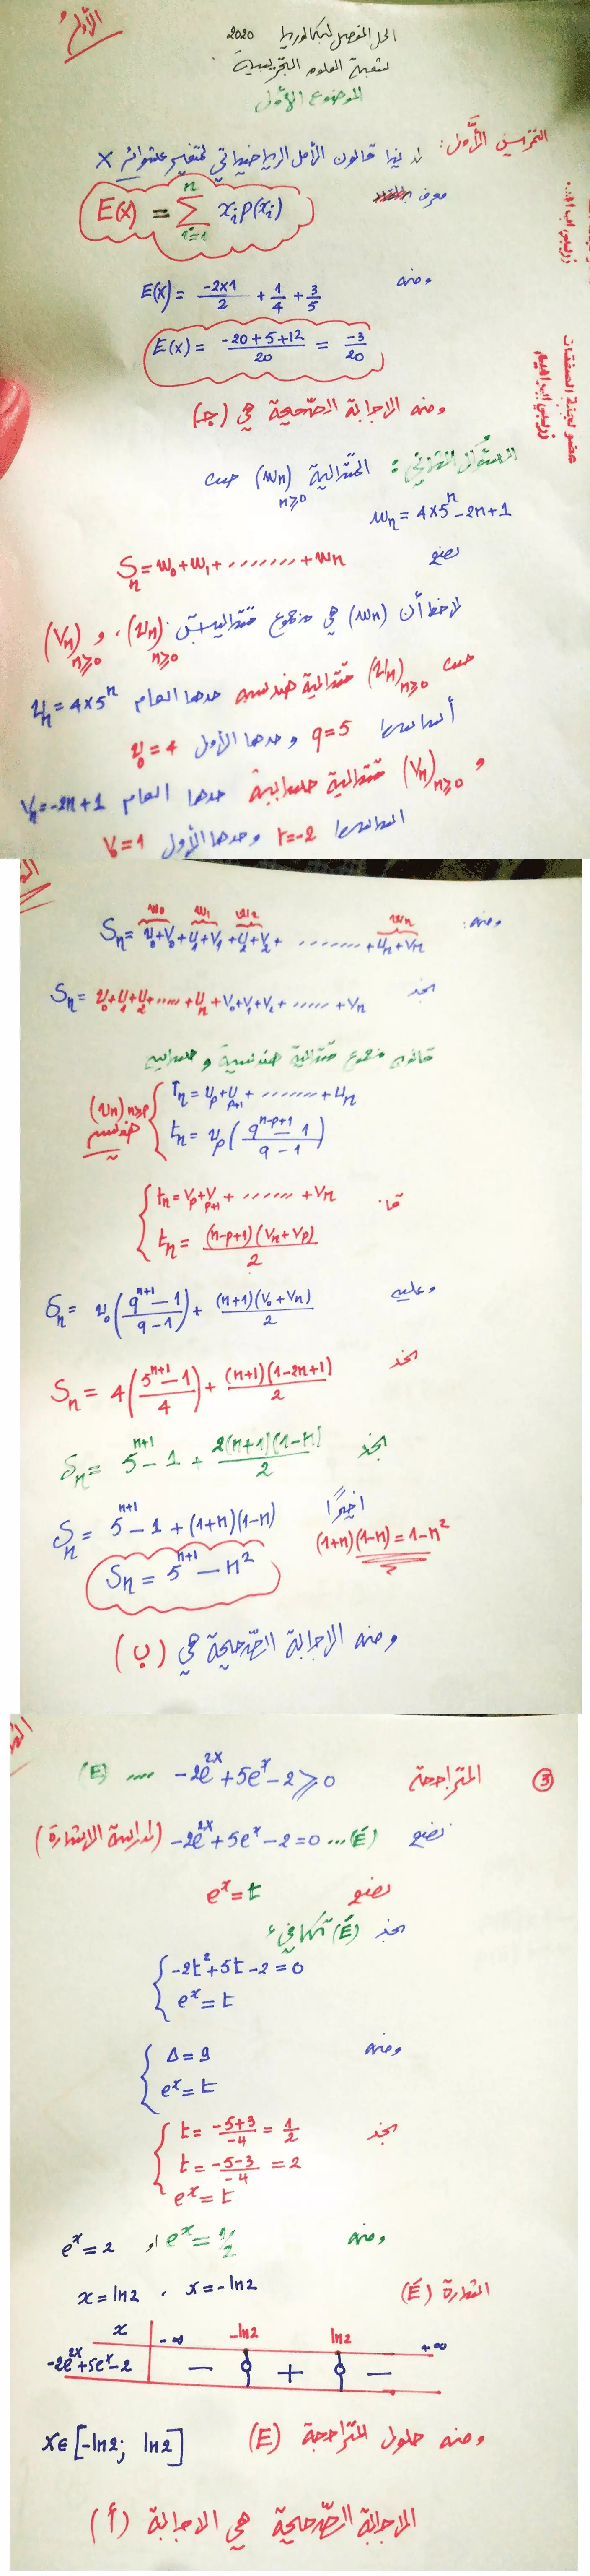 الأول
الحل المفصل لبكالوريا 2020
لشعبة العلوم التجريبية
الموضوع الأول
التمرين الأول: لدينا قانون الأمل الرياضياتي لمتغير عشوائي X
معرف
E(x) = \sum_{i=1}^{n} x_i p(x_i)
ومنه E(x) = \frac{-2×1}{2} + \frac{1}{4} + \frac{3}{5}
E(x) = \frac{-20+5+12}{20} = \frac{-3}{20}
ومنه الاجابة الصحيحة هي (جـ)
عضو لجنة الصفقات
زريبي ابراهيم
السؤال الثاني: المتتالية (w_n)_{n≥0} حيث
w_n = 4×5^n - 2n + 1
نضع
S_n = w_0 + w_1 + ........ + w_n
لاحظ أن (w_n) هي مجموع متتاليتين (u_n)_{n≥0} و (v_n)_{n≥0}
حيث (u_n)_{n≥0} متتالية هندسية حدها العام u_n = 4×5^n
أساسها q=5 وحدها الأول u_0=4
و (v_n)_{n≥0} متتالية حسابية حدها العام v_n = -2n+1
اساسها r=-2 وحدها الأول v_0=1
w_0 w_1 w_2 w_n
ومنه: S_n = u_0+v_0+u_1+v_1+u_2+v_2+ ........ +u_n+v_n
نجد S_n = u_0+u_1+u_2+.....+u_n+v_0+v_1+v_2+......+v_n
قانون مجموع متتالية هندسية و حسابية
T_n = u_p+u_{p+1}+ ........ +u_n
(u_n)_{n≥p} هندسية
t_n = u_p(\frac{q^{n-p+1}-1}{q-1})
t_n = v_p+v_{p+1}+ ....... +v_n
t_n = \frac{(n-p+1)(v_n+v_p)}{2}
وعليه S_n = u_0(\frac{q^{n+1}-1}{q-1}) + \frac{(n+1)(v_0+v_n)}{2}
نجد S_n = 4(\frac{5^{n+1}-1}{4}) + \frac{(n+1)(1-2n+1)}{2}
نجد S_n = 5^{n+1}-1 + \frac{2(n+1)(1-n)}{2}
اخيرًا S_n = 5^{n+1}-1+(1+n)(1-n)
(1+n)(1-n) = 1-n^2
S_n = 5^{n+1} - n^2
ومنه الاجابة الصحيحة هي (ب)
③ المتراجحة -2e^{2x}+5e^x-2 ≥ 0 .... (E)
نضع -2e^{2x}+5e^x-2=0 ...(É) (لدراسة الاشارة)
نضع e^x = t
نجد (É) تكافىء
-2t^2+5t-2=0
e^x = t
ومنه Δ=9
e^x = t
نجد t = \frac{-5+3}{-4} = \frac{1}{2}
t = \frac{-5-3}{-4} = 2
e^x = t
ومنه e^x = 1/2 او e^x = 2
x=ln2 , x=-ln2
اشارة (É)
x -∞ -ln2 ln2 +∞
-2e^{2x}+5e^x-2 − 0 + 0 −
ومنه حلول المتراجحة (E) x∈[-ln2; ln2]
الاجابة الصحيحة هي الاجابة (أ)